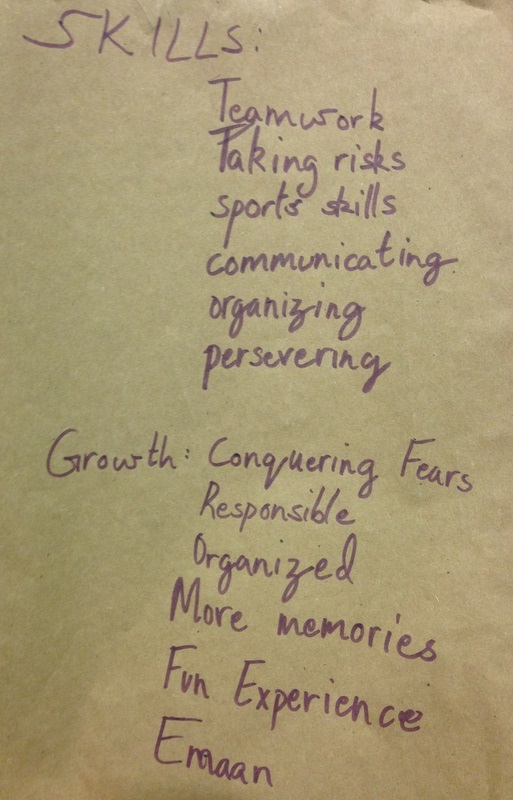 SKILLS:
Teamwork
Taking risks
sports skills
communicating
organizing
persevering
Growth: Conquering Fears
Responsible
Organized
More memories
Fun Experience
Emaan